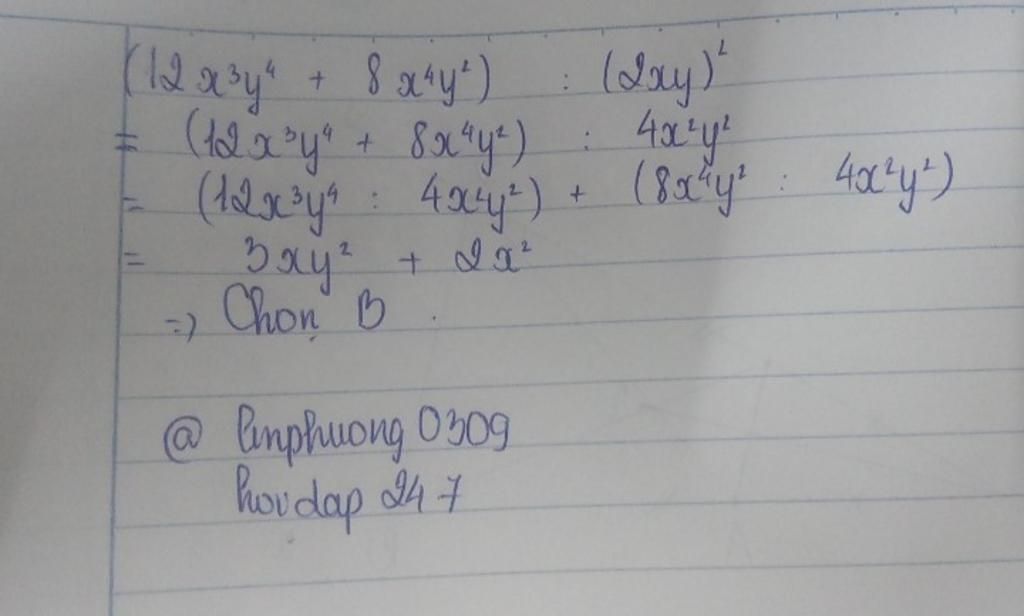 (12x³y⁴ + 8x⁴y²) : (2xy)²
= (12x³y⁴ + 8x⁴y²) : 4x²y²
= (12x³y⁴ : 4x²y²) + (8x⁴y² : 4x²y²)
= 3xy² + 2x²
=> Chọn B
@ linphuong 0309
hoidap 247